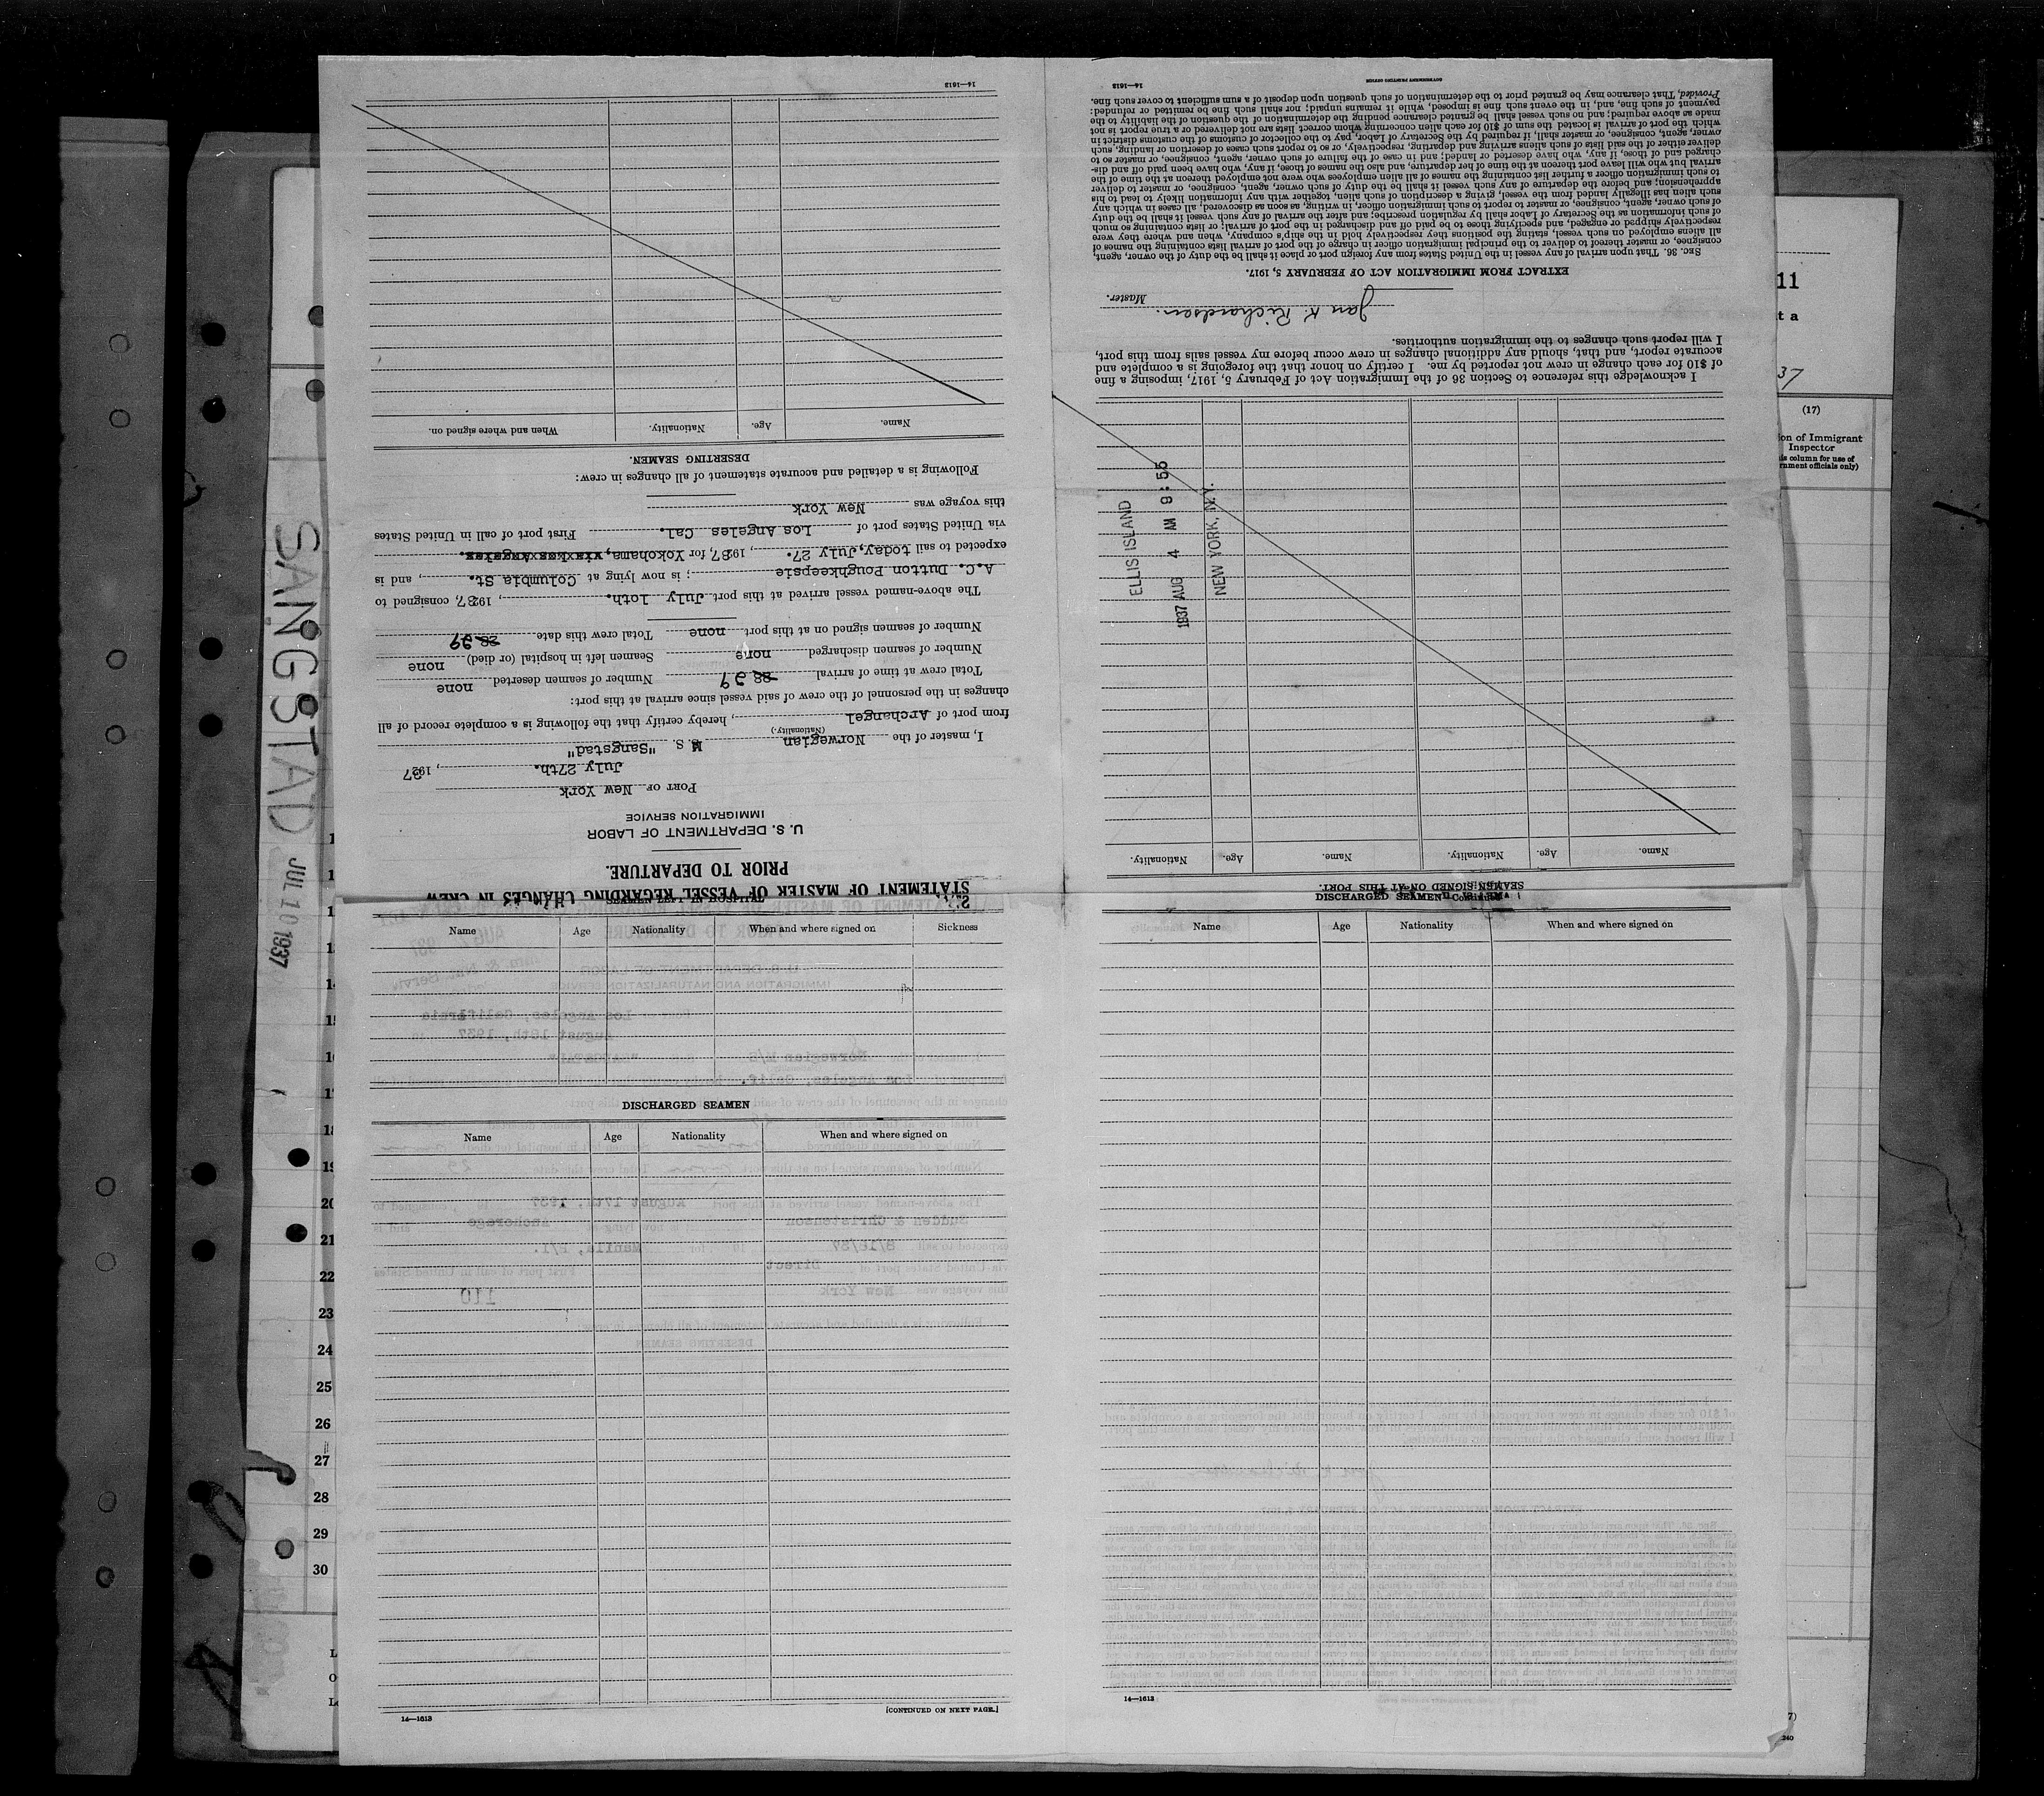 STATEMENT OF MASTER OF VESSEL REGARDING CHANGES IN CREW
PRIOR TO DEPARTURE.
U. S. DEPARTMENT OF LABOR
IMMIGRATION SERVICE
PORT OF New York
July 27th. , 1937
I, master of the Norwegian M S. S. "Sangstad"
(Nationality.)
from port of Archangel , hereby certify that the following is a complete record of all
changes in the personnel of the crew of said vessel since arrival at this port:
Total crew at time of arrival 28 29 Number of seamen deserted none
Number of seamen discharged none Seamen left in hospital (or died) none
Number of seamen signed on at this port none Total crew this date 28 29
The above-named vessel arrived at this port July 10th. , 1937, consigned to
A.C. Dutton Poughkeepsie ; is now lying at Columbia St. , and is
expected to sail today, July 27. , 1937, for Yokohama, via Los Angeles.
via United States port of Los Angeles Cal. First port of call in United States
this voyage was New York
Following is a detailed and accurate statement of all changes in crew:
DESERTING SEAMEN.
Name. Age. Nationality. When and where signed on.
14—1613
SEAMEN SIGNED ON AT THIS PORT.
Name. Age. Nationality. Name. Age. Nationality.
ELLIS ISLAND
1937 AUG 4 AM 9:55
NEW YORK, N.Y.
I acknowledge this reference to Section 36 of the Immigration Act of February 5, 1917, imposing a fine
of $10 for each change in crew not reported by me. I certify on honor that the foregoing is a complete and
accurate report, and that, should any additional changes in crew occur before my vessel sails from this port,
I will report such changes to the immigration authorities.
Jan K. Richardsen.
Master.
EXTRACT FROM IMMIGRATION ACT OF FEBRUARY 5, 1917.
SEC. 36. That upon arrival of any vessel in the United States from any foreign port or place it shall be the duty of the owner, agent,
consignee, or master thereof to deliver to the principal immigration officer in charge of the port of arrival lists containing the names of
all aliens employed on such vessel, stating the positions they respectively hold in the ship's company, when and where they were
respectively shipped or engaged, and specifying those to be paid off and discharged in the port of arrival; or lists containing so much
of such information as the Secretary of Labor shall by regulation prescribe; and after the arrival of any such vessel it shall be the duty
of such owner, agent, consignee, or master to report to such immigration officer, in writing, as soon as discovered, all cases in which any
such alien has illegally landed from the vessel, giving a description of such alien, together with any information likely to lead to his
apprehension; and before the departure of any such vessel it shall be the duty of such owner, agent, consignee, or master to deliver
to such immigration officer a further list containing the names of all alien employees who were not employed thereon at the time of the
arrival but who will leave port thereon at the time of her departure, and also the names of those, if any, who have been paid off and dis-
charged and of those, if any, who have deserted or landed; and in case of the failure of such owner, agent, consignee, or master so to
deliver either of the said lists of such aliens arriving and departing, respectively, or so to report such cases of desertion or landing, such
owner, agent, consignee, or master shall, if required by the Secretary of Labor, pay to the collector of customs of the customs district in
which the port of arrival is located the sum of $10 for each alien concerning whom correct lists are not delivered or a true report is not
made as above required; and no such vessel shall be granted clearance pending the determination of the question of the liability to the
payment of such fine, and, in the event such fine is imposed, while it remains unpaid; nor shall such fine be remitted or refunded:
Provided, That clearance may be granted prior to the determination of such question upon deposit of a sum sufficient to cover such fine.
14—1613
GOVERNMENT PRINTING OFFICE
SEAMEN LEFT IN HOSPITAL
Name Age Nationality When and where signed on Sickness
DISCHARGED SEAMEN
Name Age Nationality When and where signed on
14—1613
[CONTINUED ON NEXT PAGE.]
DISCHARGED SEAMEN—Continued
Name Age Nationality When and where signed on
14—1613
SANGSTAD JUL 10 1937
18
19
20
21
22
23
24
25
26
27
28
29
30
11
37
(17)
of Immigrant
Inspector
column for use of
officials only)
240